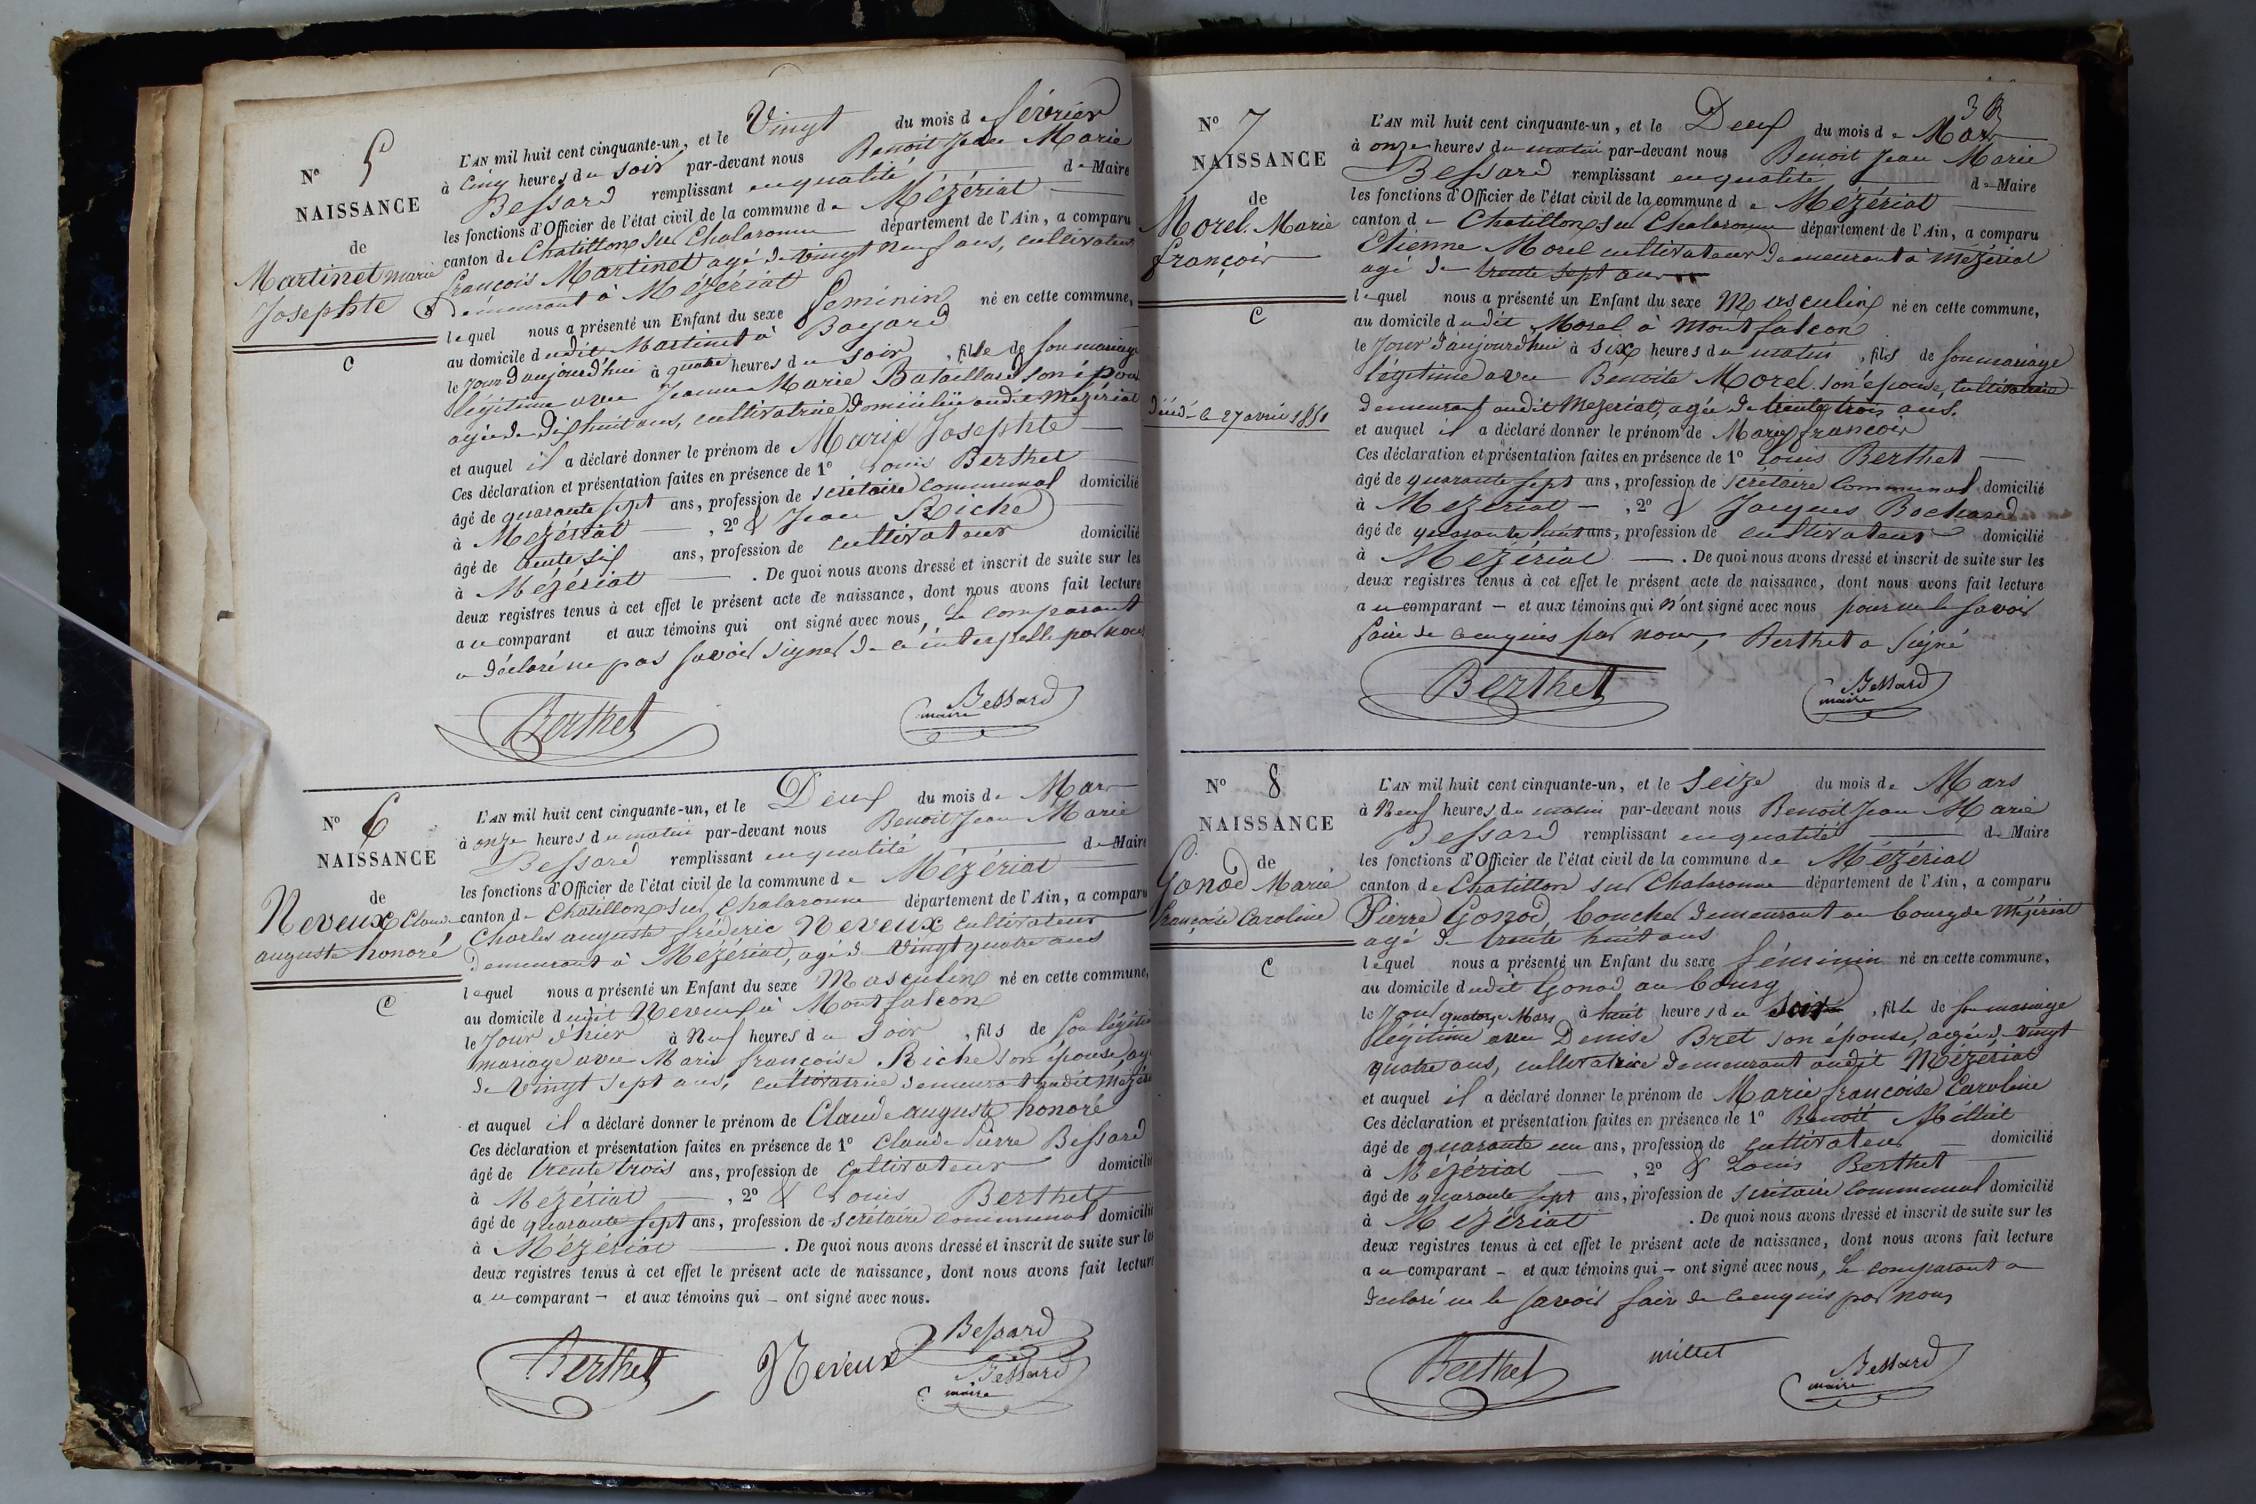 N° 5
NAISSANCE
de
Martinet marie
Josephte
C
L'AN mil huit cent cinquante-un, et le Vingt du mois de février
à Cinq heures du soir par-devant nous Benoit Jean Marie
Bessard remplissant en qualité de Maire
les fonctions d'Officier de l'état civil de la commune de Mézériat
canton de Chatillon sur Chalaronne département de l'Ain, a comparu
françois Martinet agé de vingt neuf ans, cultivateur
demeurant à Mézériat
lequel nous a présenté un Enfant du sexe féminin né en cette commune,
au domicile dudit Martinet à Bayard
le jour d'aujourd'hui à quatre heures du soir, fille de son mariage
légitime avec Jeanne Marie Bataillard son épouse
agée de dixhuit ans, cultivatrice domiciliée audit Mézériat
et auquel il a déclaré donner le prénom de Marie Josephte
Ces déclaration et présentation faites en présence de 1° Louis Berthet
âgé de quarante sept ans, profession de secrétaire communal domicilié
à Mézériat, 2° & Jean Riche
âgé de trente six ans, profession de cultivateur domicilié
à Mézériat. De quoi nous avons dressé et inscrit de suite sur les
deux registres tenus à cet effet le présent acte de naissance, dont nous avons fait lecture
au comparant et aux témoins qui ont signé avec nous, le comparant
a déclaré ne pas savoir signer de ce interpellé par nous
Berthet
Bessard
maire
N° 6
NAISSANCE
de
Neveux Claude
auguste honoré
C
L'AN mil huit cent cinquante-un, et le Deux du mois de Mars
à onze heures du matin par-devant nous Benoit Jean Marie
Bessard remplissant en qualité de Maire
les fonctions d'Officier de l'état civil de la commune de Mézériat
canton de Chatillon sur Chalaronne département de l'Ain, a comparu
Charles auguste fréderic Neveux cultivateur
demeurant à Mézériat, agé de Vingt quatre ans
lequel nous a présenté un Enfant du sexe Masculin né en cette commune,
au domicile dudit Neveux à Montfalcon
le jour d'hier à Neuf heures du soir, fils de son légitime
mariage avec Marie françoise Riche son épouse, agée
de Vingt sept ans, cultivatrice demeurant audit Mézériat
et auquel il a déclaré donner le prénom de Claude auguste honoré
Ces déclaration et présentation faites en présence de 1° Claude Pierre Bessard
âgé de trente trois ans, profession de cultivateur domicilié
à Mézériat, 2° & Louis Berthet
âgé de quarante sept ans, profession de secrétaire communal domicilié
à Mézériat. De quoi nous avons dressé et inscrit de suite sur les
deux registres tenus à cet effet le présent acte de naissance, dont nous avons fait lecture
au comparant - et aux témoins qui - ont signé avec nous.
Berthet Neveux Bessard
Bessard
maire
3
N° 7
NAISSANCE
de
Morel Marie
françois
C
Décédé le 27 avril 1851
L'AN mil huit cent cinquante-un, et le Deux du mois de Mars
à onze heures du matin par-devant nous Benoit Jean Marie
Bessard remplissant en qualité de Maire
les fonctions d'Officier de l'état civil de la commune de Mézériat
canton de Chatillon sur Chalaronne département de l'Ain, a comparu
Etienne Morel cultivateur demeurant à Mézériat
agé de trente sept ans
lequel nous a présenté un Enfant du sexe Masculin né en cette commune,
au domicile dudit Morel à Montfalcon
le jour d'aujourd'hui à six heures du matin, fils de son mariage
légitime avec Benoite Morel son épouse, cultivatrice
demeurant audit Mézériat, agée de trente trois ans.
et auquel il a déclaré donner le prénom de Marie françois
Ces déclaration et présentation faites en présence de 1° Louis Berthet
âgé de quarante sept ans, profession de secrétaire communal domicilié
à Mézériat -, 2° & Jacques Bochard
âgé de quarante huit ans, profession de cultivateur domicilié
à Mézériat. De quoi nous avons dressé et inscrit de suite sur les
deux registres tenus à cet effet le présent acte de naissance, dont nous avons fait lecture
au comparant - et aux témoins qui n'ont signé avec nous pour ne le savoir
faire de ce enquis par nous, Berthet a signé
Berthet
Bessard
maire
N° 8
NAISSANCE
de
Gonod Marie
françoise Caroline
C
L'AN mil huit cent cinquante-un, et le seize du mois de Mars
à Neuf heures du matin par-devant nous Benoit Jean Marie
Bessard remplissant en qualité de Maire
les fonctions d'Officier de l'état civil de la commune de Mézériat
canton de Chatillon sur Chalaronne département de l'Ain, a comparu
Pierre Gonod, boucher demeurant au bourg de Mézériat
agé de trente huit ans
lequel nous a présenté un Enfant du sexe féminin né en cette commune,
au domicile dudit Gonod au bourg
le jour quatorze Mars à huit heures du soir, fille de son mariage
légitime avec Denise Bret son épouse, agée de vingt
quatre ans, cultivatrice demeurant audit Mézériat
et auquel il a déclaré donner le prénom de Marie françoise Caroline
Ces déclaration et présentation faites en présence de 1° Benoit Millet
âgé de quarante un ans, profession de cultivateur domicilié
à Mézériat, 2° & Louis Berthet
âgé de quarante sept ans, profession de secrétaire communal domicilié
à Mézériat. De quoi nous avons dressé et inscrit de suite sur les
deux registres tenus à cet effet le présent acte de naissance, dont nous avons fait lecture
au comparant - et aux témoins qui - ont signé avec nous, le comparant a
déclaré ne le savoir faire de ce enquis par nous
Berthet millet Bessard
maire